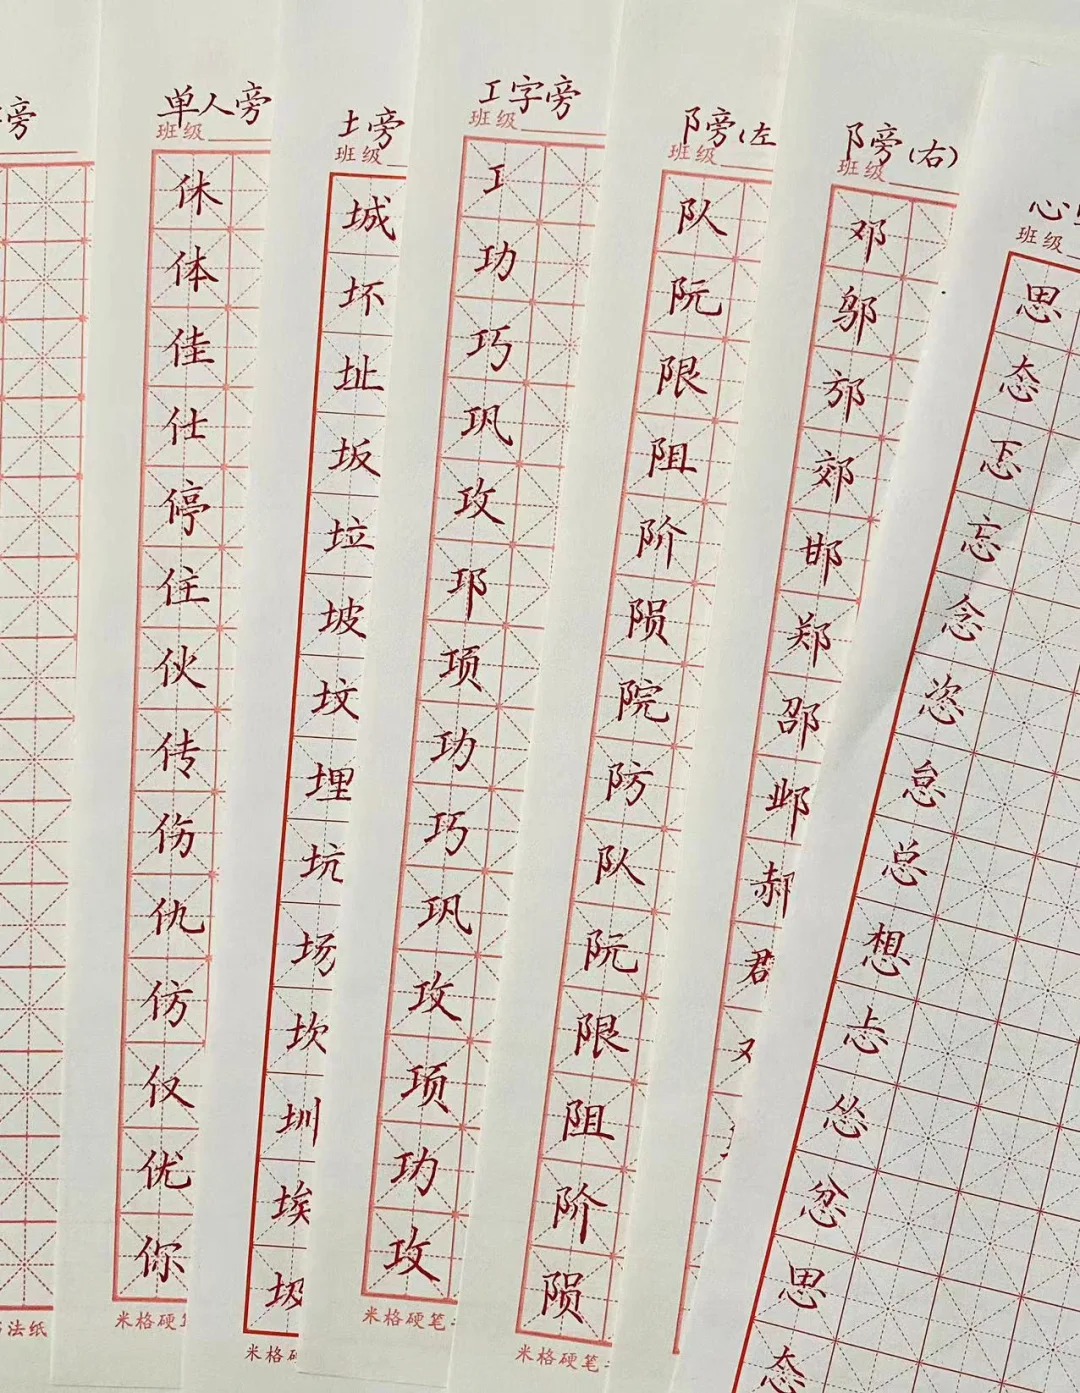 旁
法纸
单人旁
班级
休
体
佳
仕
停
住
伙
传
伤
仇
仿
仅
优
你
米格硬
土旁
班级
城
坏
址
坂
垃
坡
坟
埋
坑
场
坎
圳
埃
圾
米格
工字旁
班级
工
功
巧
巩
攻
邛
项
功
巧
巩
攻
项
功
攻
米格硬笔
阝旁(左
班级
队
阮
限
阻
阶
陨
院
防
队
阮
限
阻
阶
陨
米格硬笔
阝旁(右)
班级
邓
邬
邡
郊
邯
郑
邵
邺
郝
君
心
班级
思
态
忘
念
恣
怠
总
想
忐
怂
忿
思
态